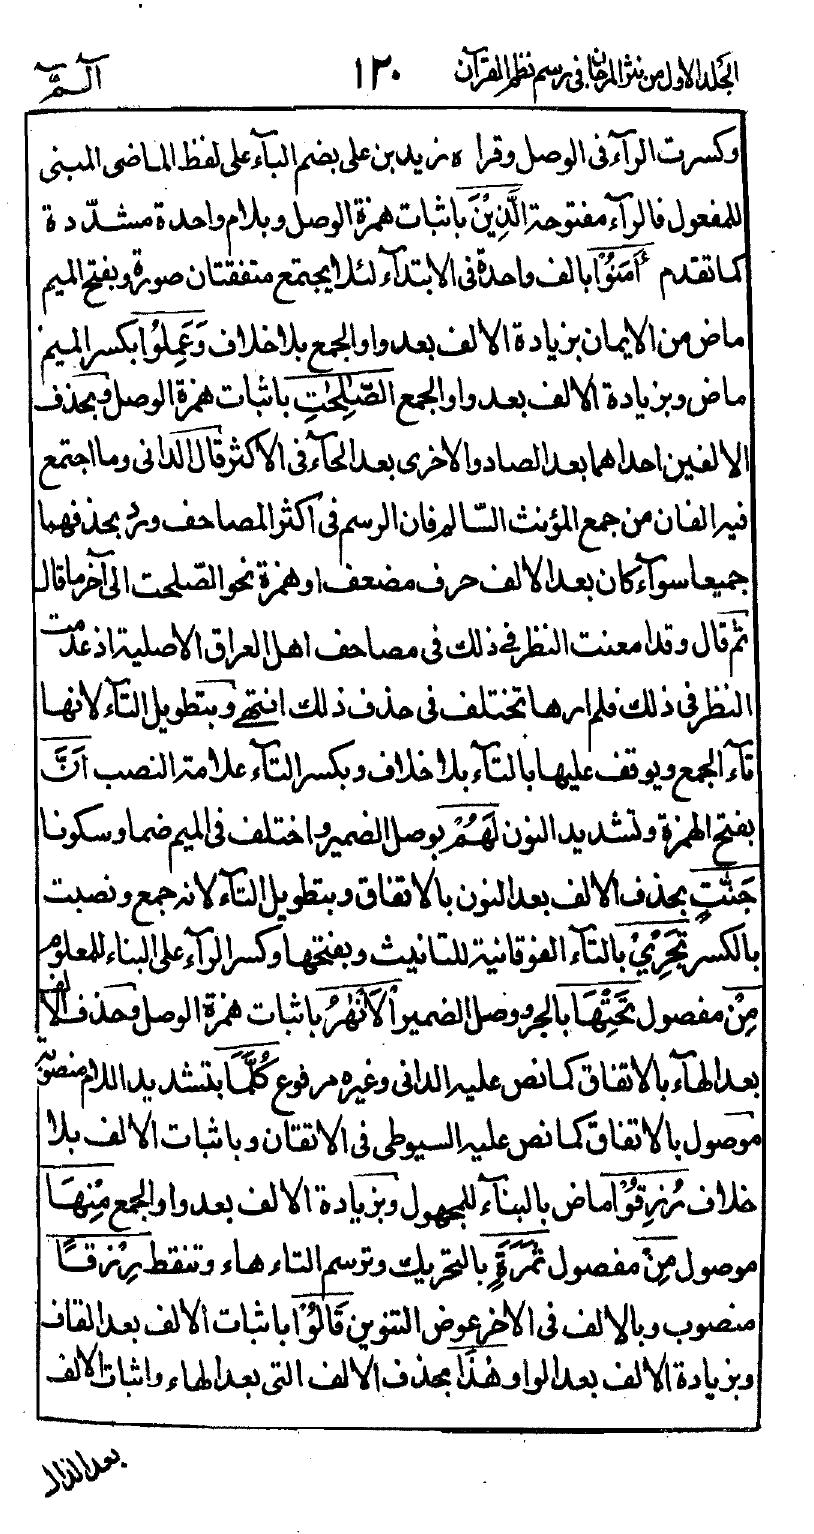 الجلد الاول من نثر المرجان فى رسم نظم القرآن
١٢٠
الٓمّٓ
وكسرت الرآء فى الوصل وقرأه زيد بن على بضم البآء على لفظ الماضى المبنى
للمفعول فالرآء مفتوحة الَّذِيْنَ باثبات همزة الوصل وبلام واحدة مشدّدة
كما تقدم اٰمَنُوْا بالف واحدة فى الابتدآء لئلا يجتمع متفقتان صورة وبفتح الميم
ماض من الايمان بزيادة الالف بعد واو الجمع بلا خلاف وَعَمِلُوا بكسر الميم
ماض وبزيادة الالف بعد واو الجمع الصّٰلِحٰتِ باثبات همزة الوصل وبحذف
الالفين احداهما بعد الصاد والاخرى بعد الحآء فى الاكثر قال الدانى وما اجتمع
فيه الفان من جمع المؤنث السّالم فان الرسم فى اكثر المصاحف ورد بحذفهما
جميعا سوآء كان بعد الالف حرف مضعف او همزة نحو الصّلحت الى آخر ما قال
ثم قال وقد امعنت النظر فى ذلك فى مصاحف اهل العراق الاصلية اذ عدمت
النظر فى ذلك فلم ارها تختلف فى حذف ذلك انتهى وبتطويل التآء لانها
تآء الجمع ويوقف عليها بالتآء بلا خلاف وبكسر التآء علامة النصب اَنَّ
بفتح الهمزة وتشديد النون لَهُمْ بوصل الضمير واختلف فى الميم ضما وسكونا
جَنّٰتٍ بحذف الالف بعد النون بالاتفاق وبتطويل التآء لانه جمع ونصبت
بالكسر تَجْرِيْ بالتآء الفوقانية للتانيث وبفتحها وكسر الرآء على البناء للمعلوم
مِنْ مفصول تَحْتِهَا بالجر ووصل الضمير الْاَنْهٰرُ باثبات همزة الوصل وحذف الالف
بعد الهآء بالاتفاق كما نص عليه الدانى وغيره مرفوع كُلَّمَا بتشديد اللام منصوبة
موصول بالاتفاق كما نص عليه السيوطى فى الاتقان وباثبات الالف بلا
خلاف رُزِقُوْا ماض بالبنآء للمجهول وبزيادة الالف بعد واو الجمع مِنْهَا
موصول مِنْ مفصول ثَمَرَةٍ بالتحريك وترسم التاء هاء وتنقط رِزْقًا
منصوب وبالالف فى الاخر عوض التنوين قَالُوْا باثبات الالف بعد القاف
وبزيادة الالف بعد الواو هٰذَا بحذف الالف التى بعد الهاء واثبات الالف
بعد الذال